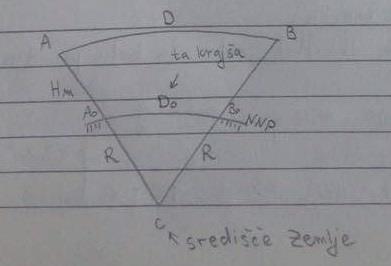 D
A
B
ta krajša
Hm
D₀
A₀
B₀
NNP
R
R
C
središče Zemlje